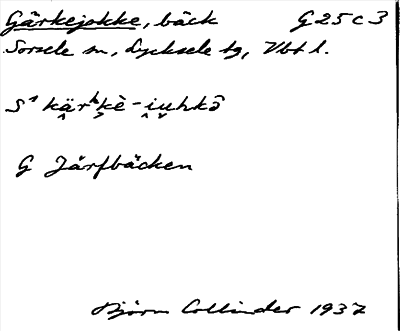 Gärkejokke, bäck G25c3
Sorsele sn, Lycksele tg, Vbt l.
S¹ kä̭rᵏk̭è-i̭u̬hkɔ̂
G Järfbäcken
Björn Collinder 1937